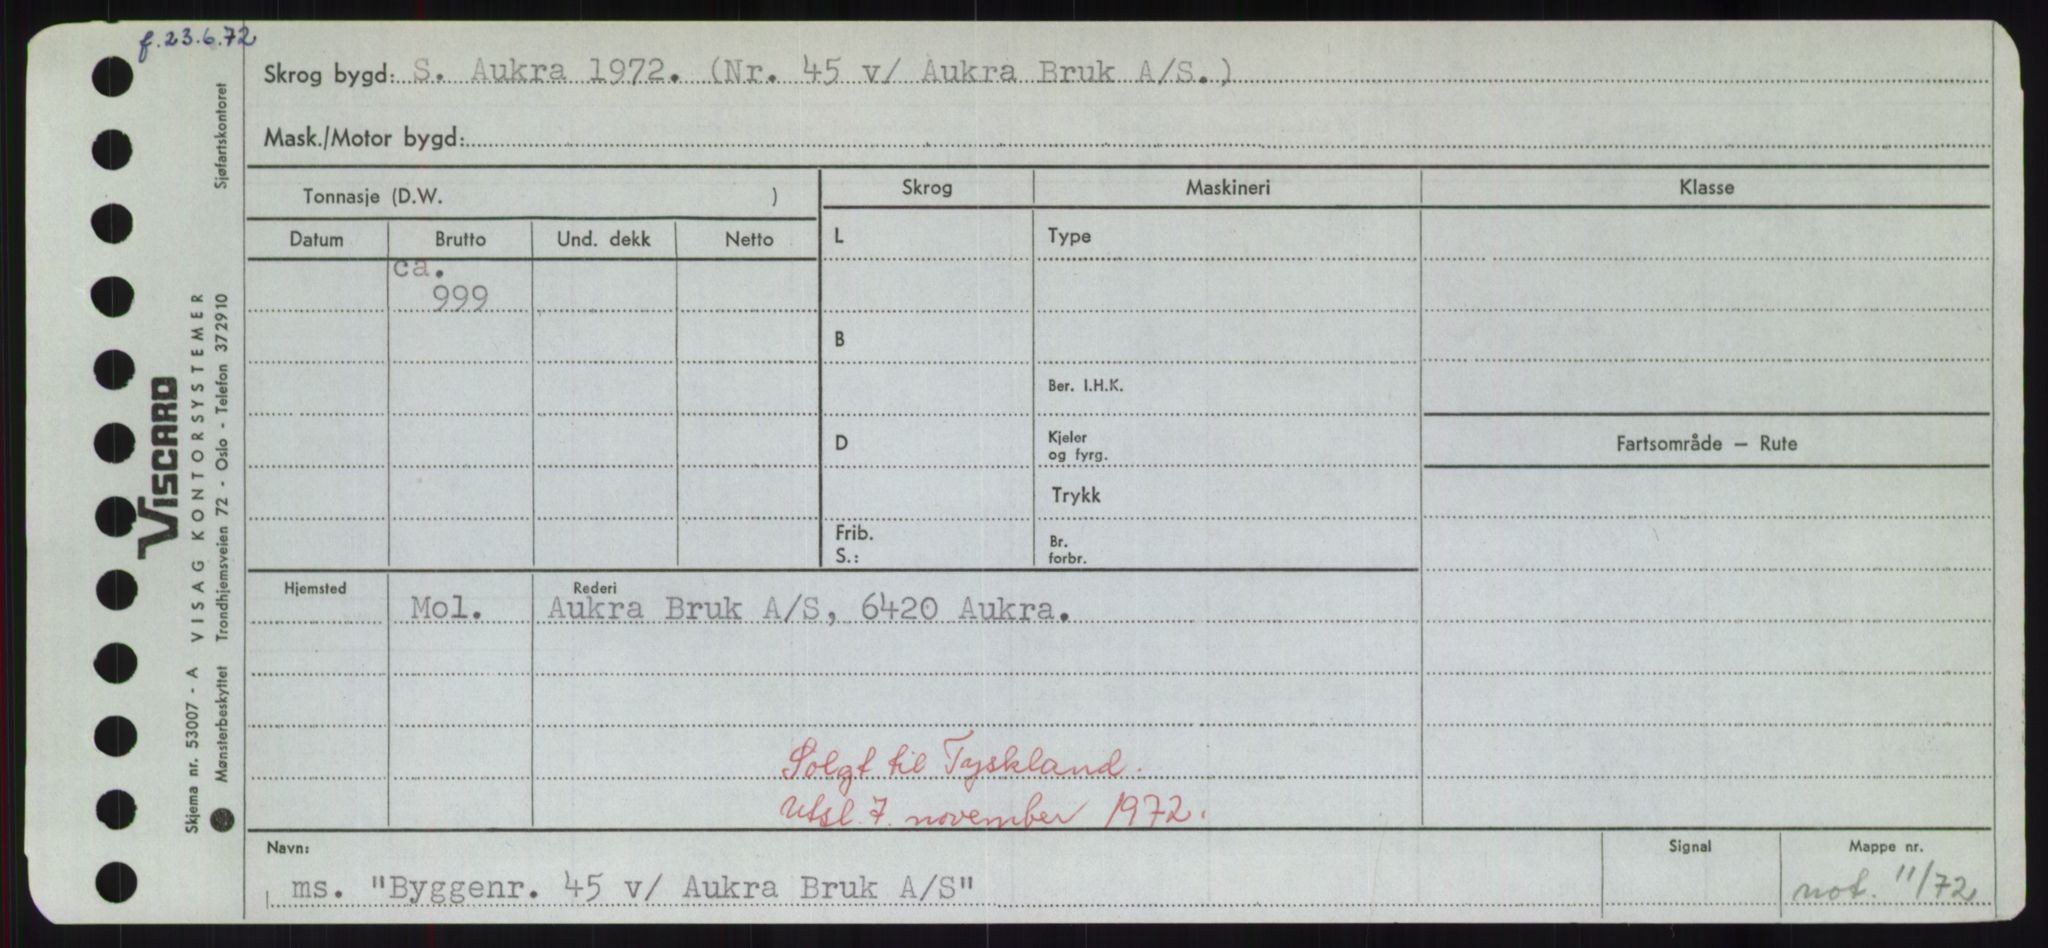 f. 23.6.72
Skrog bygd: S. Aukra 1972. (Nr. 45 v/ Aukra Bruk A/S.)
Mask./Motor bygd:
Tonnasje (D.W. )
Datum Brutto Und. dekk Netto
ca.
999
Skrog Maskineri Klasse
L Type
B
Ber. I.H.K.
D Kjeler
og fyrg.
Fartsområde – Rute
Trykk
Frib.
S.:
Br.
forbr.
Hjemsted Rederi
Mol. Aukra Bruk A/S, 6420 Aukra.
Solgt til Tyskland.
Utsl. 7. november 1972.
Navn: Signal Mappe nr.
ms. "Byggenr. 45 v/ Aukra Bruk A/S" not. 11/72
VISCARD
Skjema nr. 53007 - A VISAG KONTORSYSTEMER
Mønsterbeskyttet Trondhjemsveien 72 - Oslo - Telefon 372910 Sjøfartskontoret